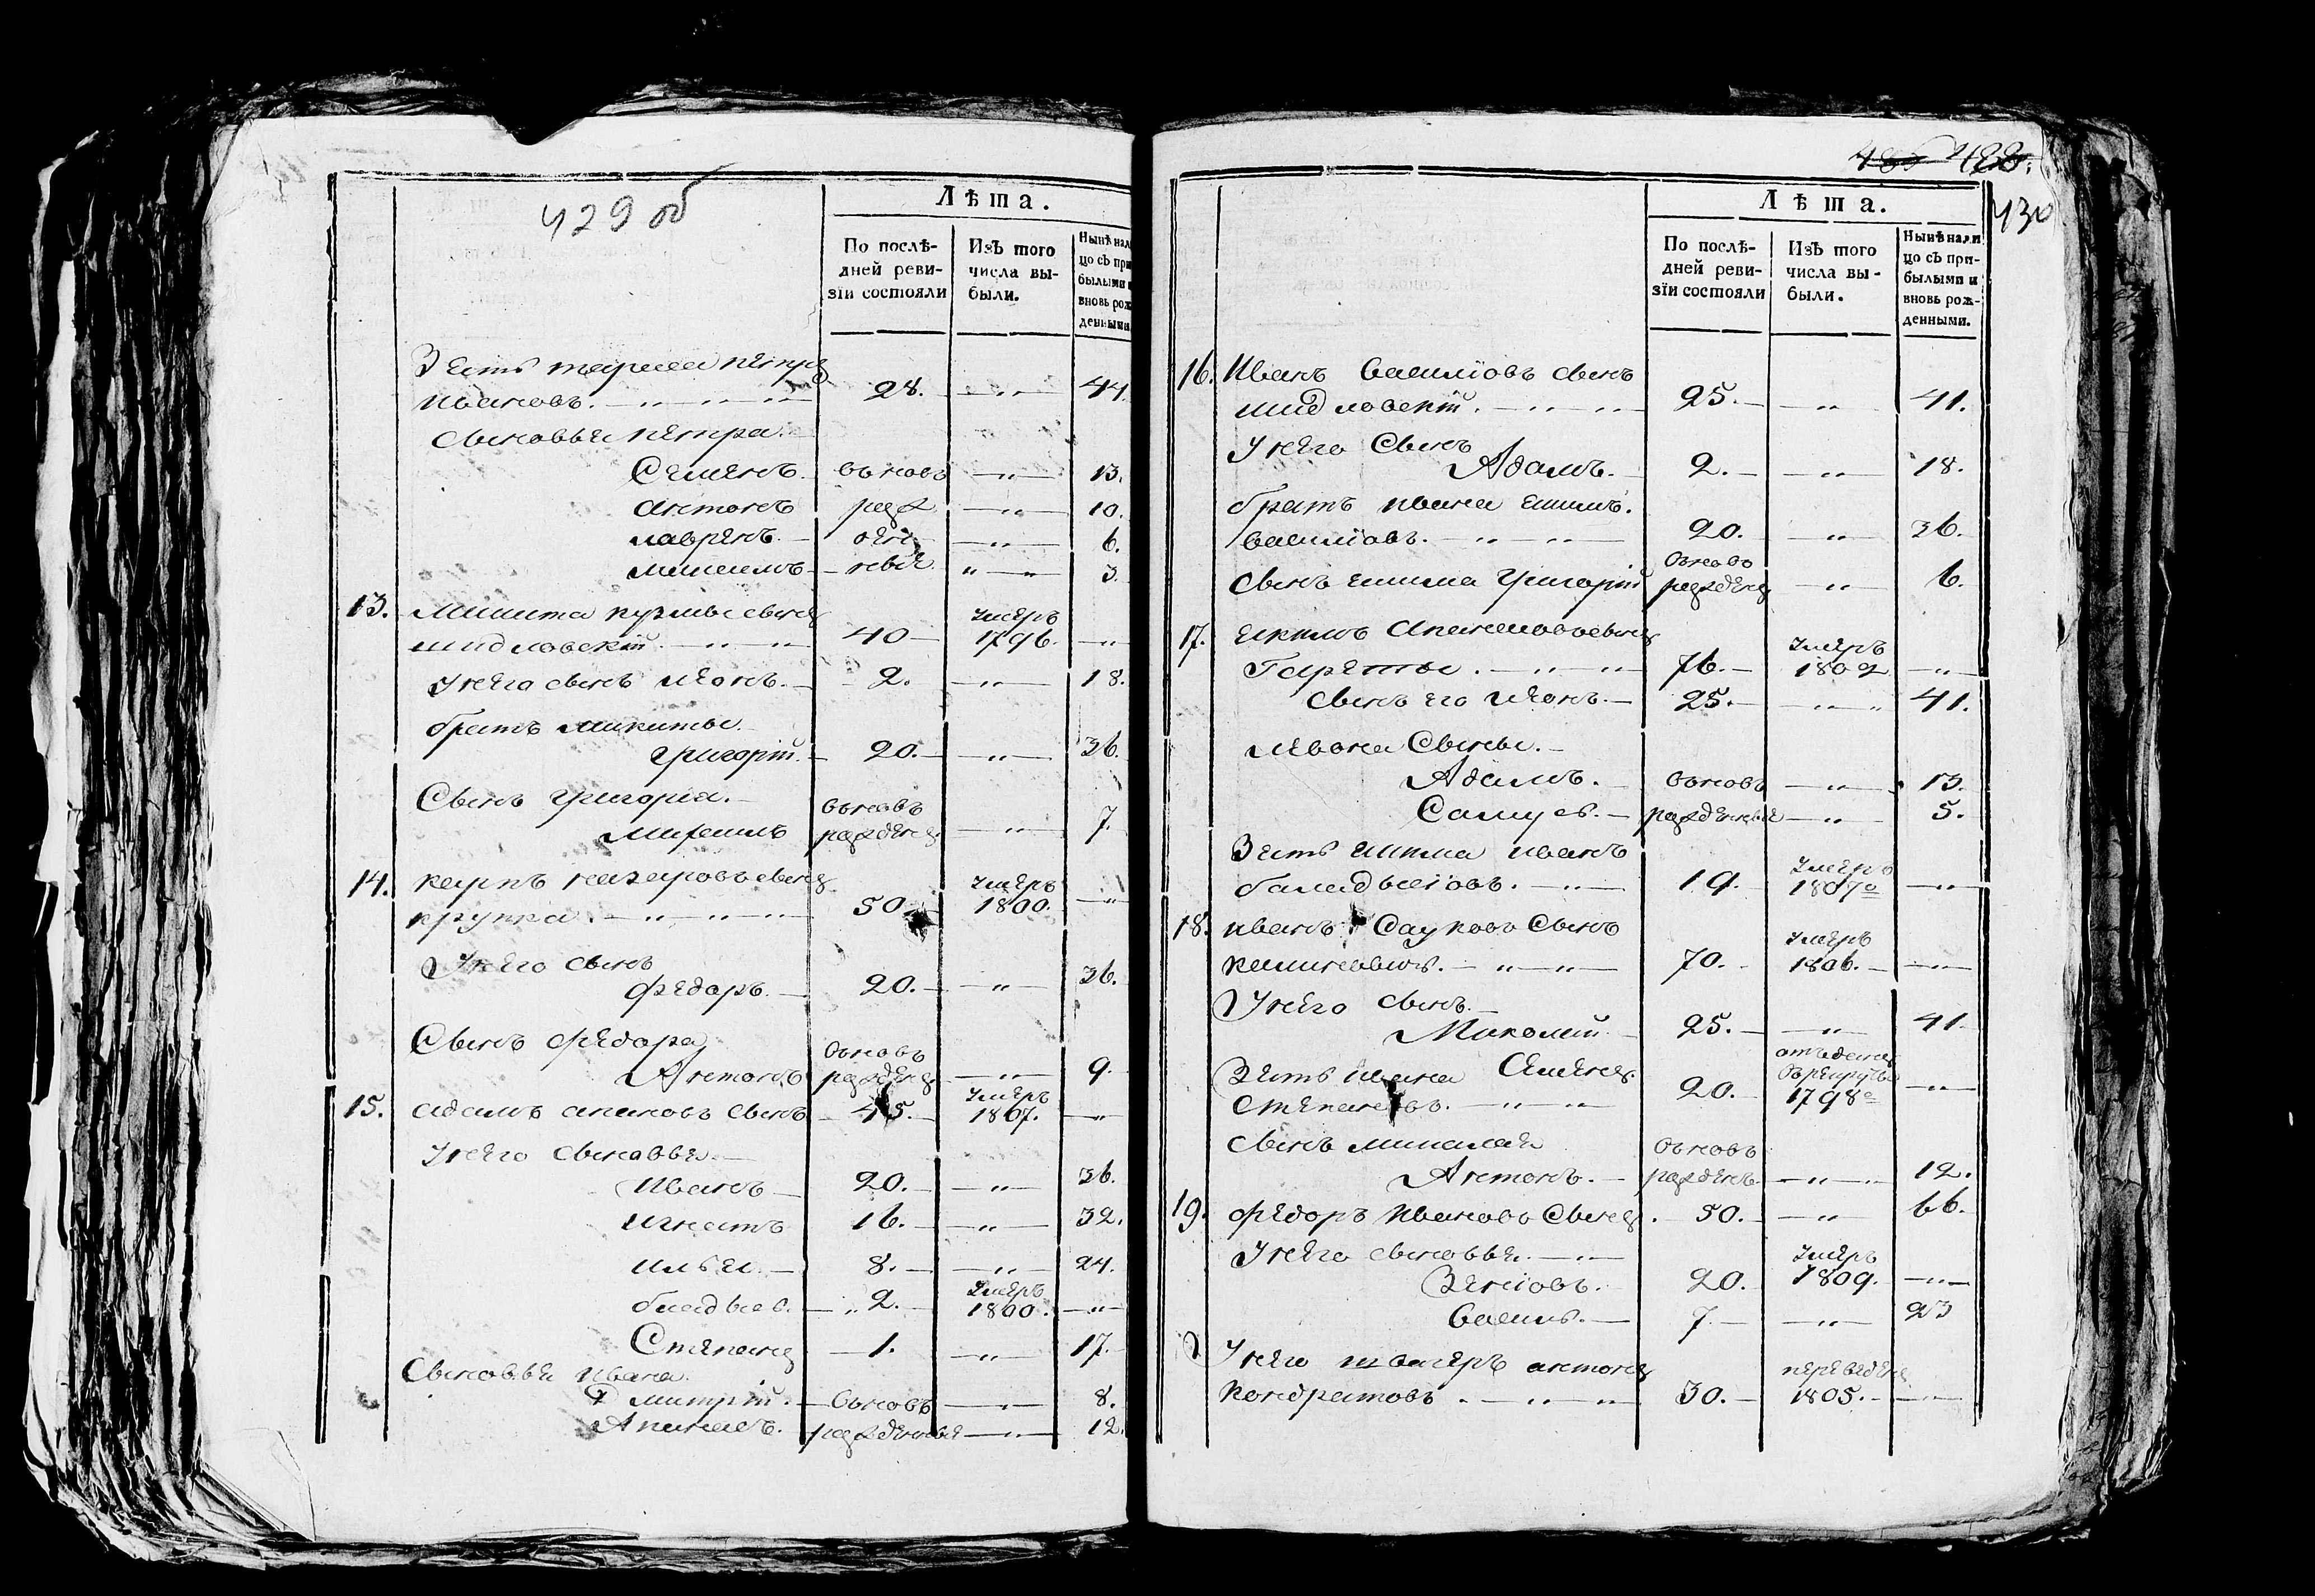 429 об
Лѣта.
По послѣ-
дней реви-
зїи состояли
Изъ того
числа вы-
были.
Нынѣ нал
цо съ при
былыми и
вновь рож
денными
Зять тараса петръ
ивановъ. 28. 44.
сыновья петра.
Семенъ вьновь 13.
антонъ рож 10.
лавренъ 6.
максимъ 3.
13. Микита кузмы сынъ
шидловскїй 40 умеръ 1796.
у него сынъ леонъ. 2. 18.
братъ микиты.
григорїй. 20. 36.
Сынъ григорія.
михаилъ вьновь рожденъ 7.
14. карпъ назаровъ сынъ
крупка. 50. умеръ 1800.
У него сынъ
федоръ. 20. 36.
Сынъ федора
Антонъ вьновь рожденъ 9.
15. адамъ апановъ сынъ 45. умеръ 1807.
У него сыновья.
Иванъ 20. 36.
игнатъ 16. 32.
илья. 8. 24.
2. умеръ 1800.
Степанъ 1. 17.
Сыновья ивана.
Дмитрїй. вьновь 8.
Апанасъ. рожденные 12.
430
Лѣта.
По послѣ-
дней реви-
зїи состояли
Изъ того
числа вы-
были.
Нынѣ нали
цо съ при-
былыми и
вновь рож-
денными.
16. Иванъ василїовъ сынъ
шидловскїй. 25. 41.
У него Сынъ
Адамъ. 2. 18.
братъ ивана
василїовъ. 20. 36.
сынъ григорїй вьново рожденъ 6.
17. сынъ
76. умеръ 1802
сынъ его леонъ. 25. 41.
Левона Сыны.
Адамъ. вьновь 13.
Самусь. рожденные 5.
Зять иванъ
19. умеръ 1807го
18. иванъ Сынъ
70. умеръ 1806.
У него сынъ.
Миколай 25. 41.
Зять ивана Семенъ
степановъ. 20. отъданъ въ рекруты 1798го
сынъ миколая
Антонъ. вьновь рожденъ 12.
19. федоръ ивановъ Сынъ. 50. 66.
У него сыновья.
Зеновъ. 20. умеръ 1809.
василь. 7. 23
У него швагеръ антонъ
кондратовъ. 30. переведенъ 1805.